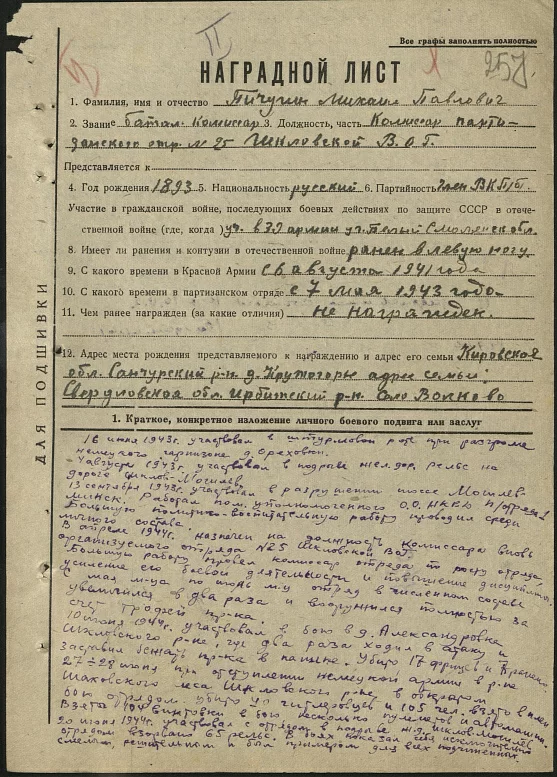 Все графы заполнять полностью
II
257.
НАГРАДНОЙ ЛИСТ
1. Фамилия, имя и отчество Пичугин Михаил Павлович
2. Звание батал. Комиссар 3. Должность, часть Комиссар парти-
занского отр. N 25 Шкловской В.О.Г.
Представляется к
4. Год рождения 1893 5. Национальность русский 6. Партийность член ВКП/б/
Участие в гражданской войне, последующих боевых действиях по защите СССР в отече-
ственной войне (где, когда) уч. в 39 армии Смоленск обл.
8. Имеет ли ранения и контузии в отечественной войне ранен в левую ногу.
9. С какого времени в Красной Армии с 6 августа 1941 года
10. С какого времени в партизанском отряде с 7 мая 1943 года
11. Чем ранее награжден (за какие отличия) не награжден.
12. Адрес места рождения представляемого к награждению и адрес его семьи Кировская
обл. Санчурский р-н д. Крутогорье адрес семьи:
Свердловская обл. Ирбитский р-н село Волково
ДЛЯ ПОДШИВКИ
1. Краткое, конкретное изложение личного боевого подвига или заслуг
16 июня 1943г. участвовал в штурмовой роте при разгроме
немецкого гарнизона д. Ореховки.
4 августа 1943г. участвовал в подрыве жел.дор. рельс на
дороге Шклов-Могилев.
13 сентября 1943г. участвовал в разрушении шоссе Могилев-
Минск. Работал пом. уполномоченного О.О. НКВД п/отряда.
Большую политико-воспитательную работу проводил среди
личного состава.
В апреле 1944г. назначен на должность комиссара вновь
организуемого отряда N25 Шкловской ВОГ.
Большую работу провел комиссар отряда по росту отряда,
усиление его боевой деятельности и повышение дисциплины.
С мая м-ца по июль м-ц отряд в численном составе
увеличился в два раза и вооружился полностью за
счет трофей пр-ка.
10 июня 1944г. участвовал в бою в д. Александровка
Шкловского р-на, где два раза ходил в атаку и
заставил бежать пр-ка в панике. Убито 17 фрицев и
27-28 июня при отступлении немецкой армии в р-не
леса Шкловского р-на в открытом
бою отрядом убито гитлеровцев и 105 чел. взято в плен
Взяты 104 винтовки, в бою несколько пулеметов и автомашин.
20 июня 1944г. участвовал с отрядом в подрыве ж.д. Шклов-Могилев
отрядом взорвано 65 рельс. В боях показал себя исключительно
смелым, решительным и был примером для всех подчиненных.